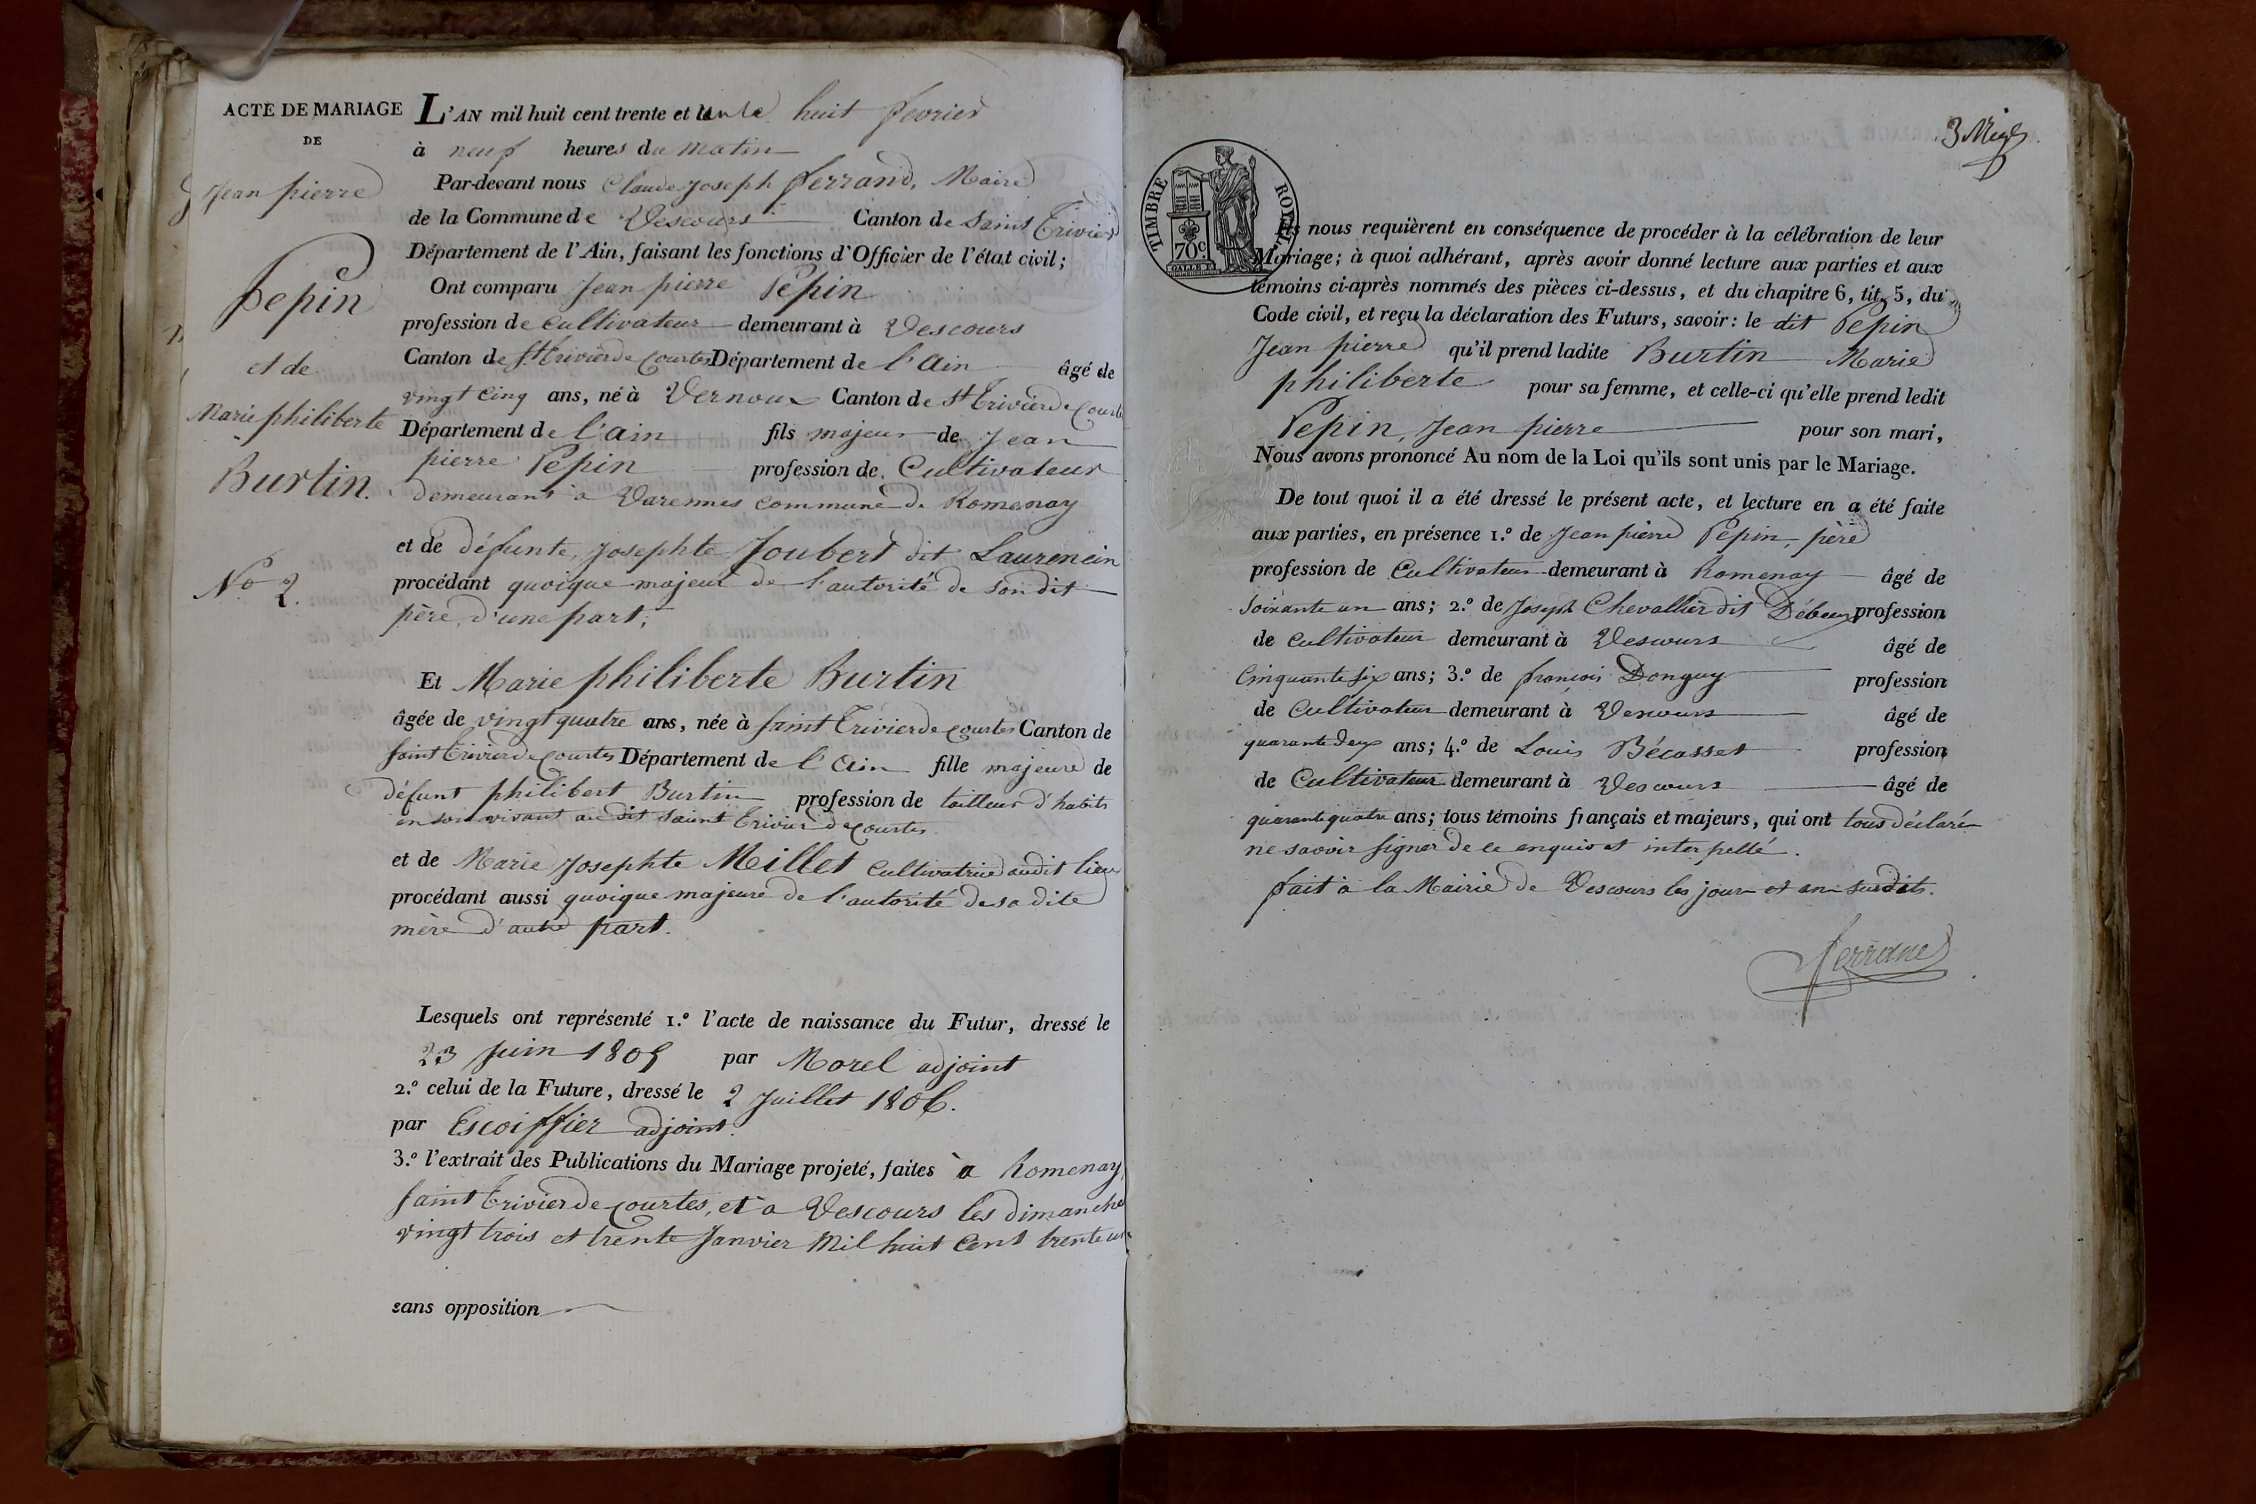 ACTE DE MARIAGE
DE
Jean pierre
Pepin
et de
Marie philiberte
Burtin.
N.o 2.
L'AN mil huit cent trente et un le huit fevrier
à neuf heures du matin
Par-devant nous Claude Joseph Ferrand, Maire
de la Commune de Vescours Canton de Saint Trivier
Département de l'Ain, faisant les fonctions d'Officier de l'état civil;
Ont comparu Jean pierre Pepin
profession de cultivateur demeurant à Vescours
Canton de St. Trivier de Courtes Département de l'Ain âgé de
vingt cinq ans, né à Vernoux Canton de St. Trivier de Courtes
Département de l'ain fils majeur de Jean
pierre Pepin profession de Cultivateur
demeurant à Varennes commune de Romenay
et de défunte, Josephte Joubert dit Laurencin
procédant quoique majeur de l'autorité de son dit
père, d'une part;
Et Marie philiberte Burtin
âgée de vingt quatre ans, née à Saint Trivier de Courtes Canton de
Saint Trivier de Courtes Département de l'Ain fille majeure de
défunt philibert Burtin profession de tailleur d'habits
en son vivant au dit Saint Trivier de Courtes
et de Marie Josephte Millet Cultivatrice audit lieu
procédant aussi quoique majeure de l'autorité de sa dite
mère d'autre part.
Lesquels ont représenté 1.o l'acte de naissance du Futur, dressé le
23 Juin 1805 par Morel adjoint
2.o celui de la Future, dressé le 2 Juillet 1806.
par Escoiffier adjoint.
3.o l'extrait des Publications du Mariage projeté, faites à Romenay,
Saint Trivier de Courtes, et à Vescours les dimanches
vingt trois et trente Janvier Mil huit Cent trente un
sans opposition
TIMBRE ROYAL
70c
nous requièrent en conséquence de procéder à la célébration de leur
Mariage; à quoi adhérant, après avoir donné lecture aux parties et aux
témoins ci-après nommés des pièces ci-dessus, et du chapitre 6, tit. 5, du
Code civil, et reçu la déclaration des Futurs, savoir: le dit Pepin
Jean pierre qu'il prend ladite Burtin Marie
philiberte pour sa femme, et celle-ci qu'elle prend ledit
Pepin, Jean pierre pour son mari,
Nous avons prononcé Au nom de la Loi qu'ils sont unis par le Mariage.
De tout quoi il a été dressé le présent acte, et lecture en a été faite
aux parties, en présence 1.o de Jean pierre Pepin, père
profession de Cultivateur demeurant à Romenay âgé de
soixante un ans; 2.o de Joseph Chevallier dit profession
de cultivateur demeurant à Vescours âgé de
Cinquante six ans; 3.o de françois Donguy profession
de Cultivateur demeurant à Vescours âgé de
quarante deux ans; 4.o de Louis Bécasset profession
de Cultivateur demeurant à Vescours âgé de
quarante quatre ans; tous témoins français et majeurs, qui ont tous déclaré
ne savoir signer de ce enquis et interpellé.
fait à la Mairie de Vescours les jour et an susdits.
Ferrand